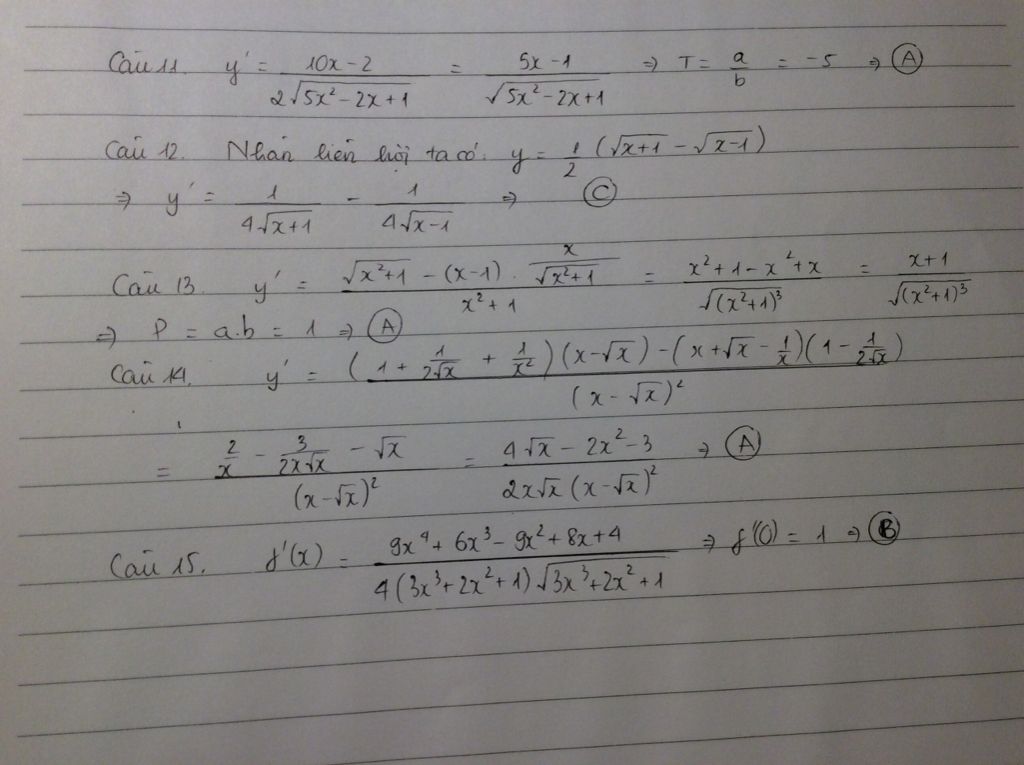 Câu 11. y' = (10x-2)/(2√(5x²-2x+1)) = (5x-1)/(√(5x²-2x+1)) ⇒ T = a/b = -5 ⇒ Ⓐ
Câu 12. Nhân liên hợp ta có. y = 1/2 (√(x+1) - √(x-1))
⇒ y' = 1/(4√(x+1)) - 1/(4√(x-1)) ⇒ Ⓒ
Câu 13. y' = (√(x²+1) - (x-1) . x/√(x²+1))/(x²+1) = (x²+1-x²+x)/(√((x²+1)³)) = (x+1)/(√((x²+1)³))
⇒ P = a.b = 1 ⇒ Ⓐ
Câu 14. y' = ((1 + 1/(2√x) + 1/x²)(x-√x) - (x+√x - 1/x)(1 - 1/(2√x)))/((x-√x)²)
= (2/x - 3/(2x√x) - √x)/((x-√x)²) = (4√x - 2x² - 3)/(2x√x (x-√x)²) ⇒ Ⓐ
Câu 15. f'(x) = (9x⁴ + 6x³ - 9x² + 8x + 4)/(4(3x³+2x²+1)√(3x³+2x²+1)) ⇒ f'(0) = 1 ⇒ Ⓑ